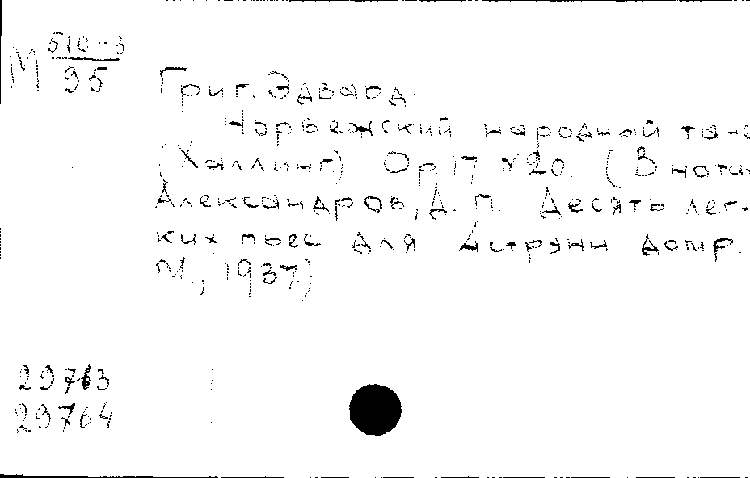 М 510-3
95
Григ. Эдвард.
Норвежский народный тане
(Халлинг) Op 17 №20. (В нотах
Александров, А. П. Десять лег-
ких пьес для 4струнн домр.
М., 1937)
29763
29764